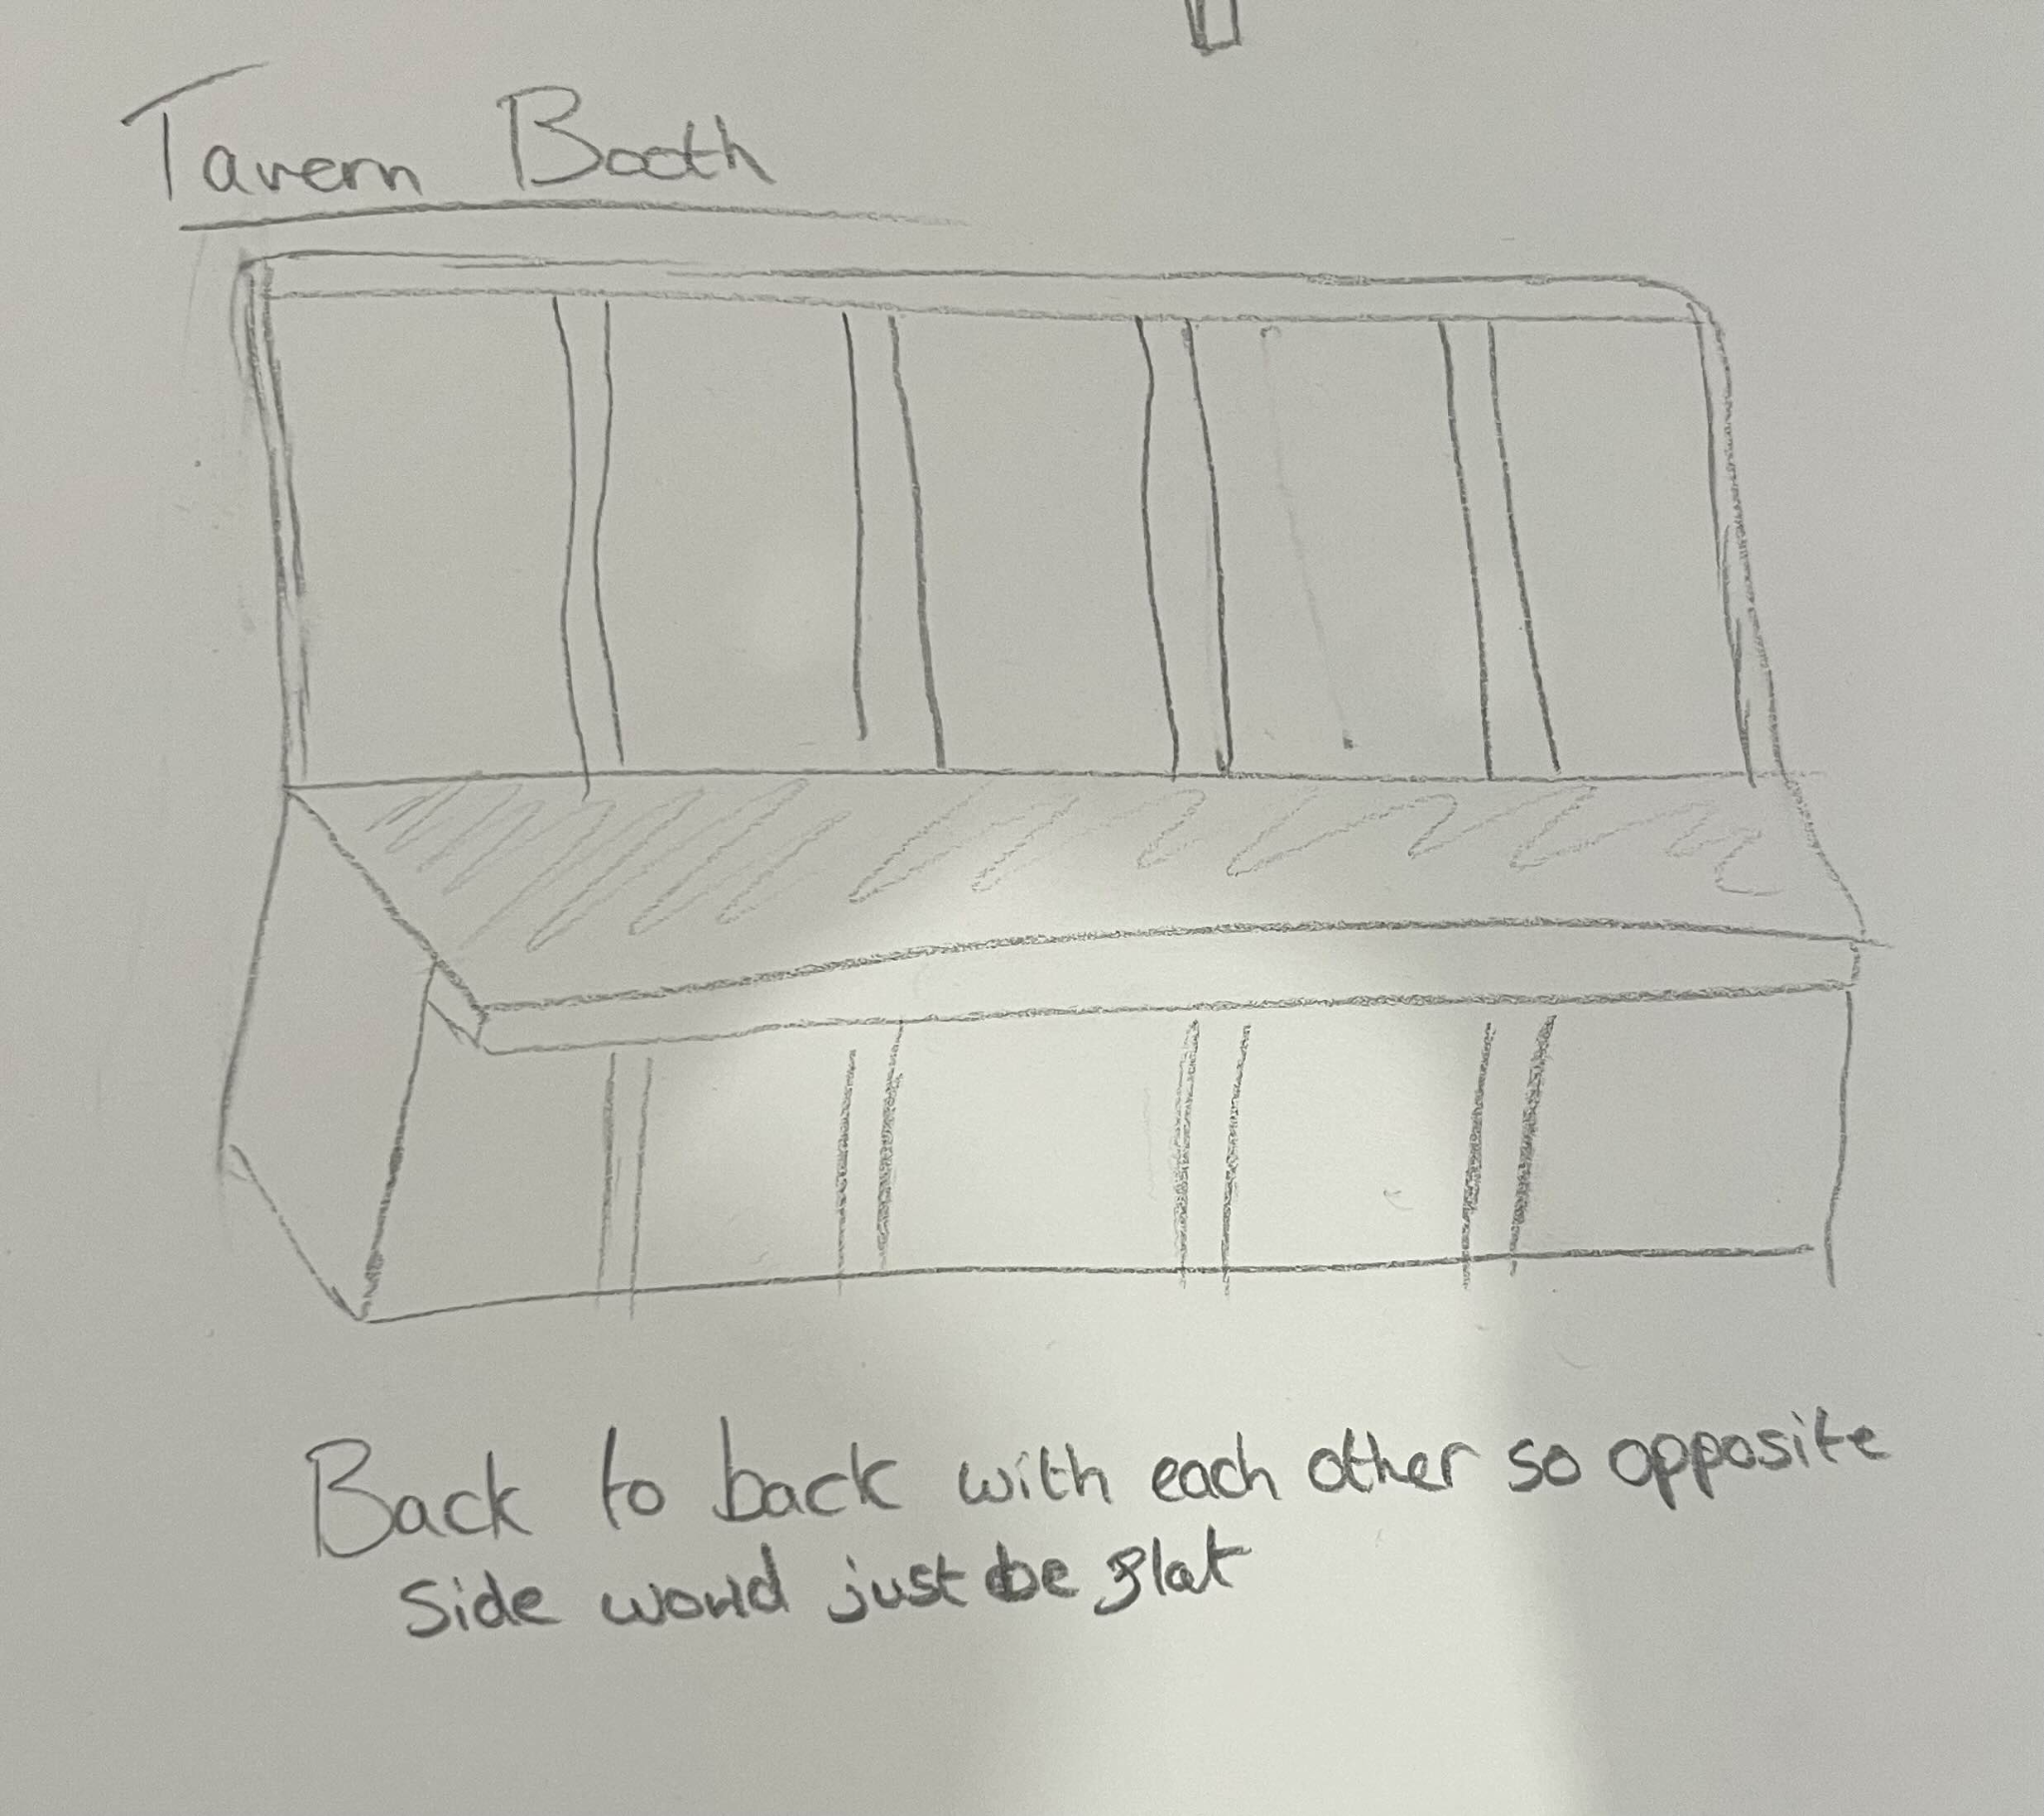 Tavern Booth
Back to back with each other so opposite
side would just be flat